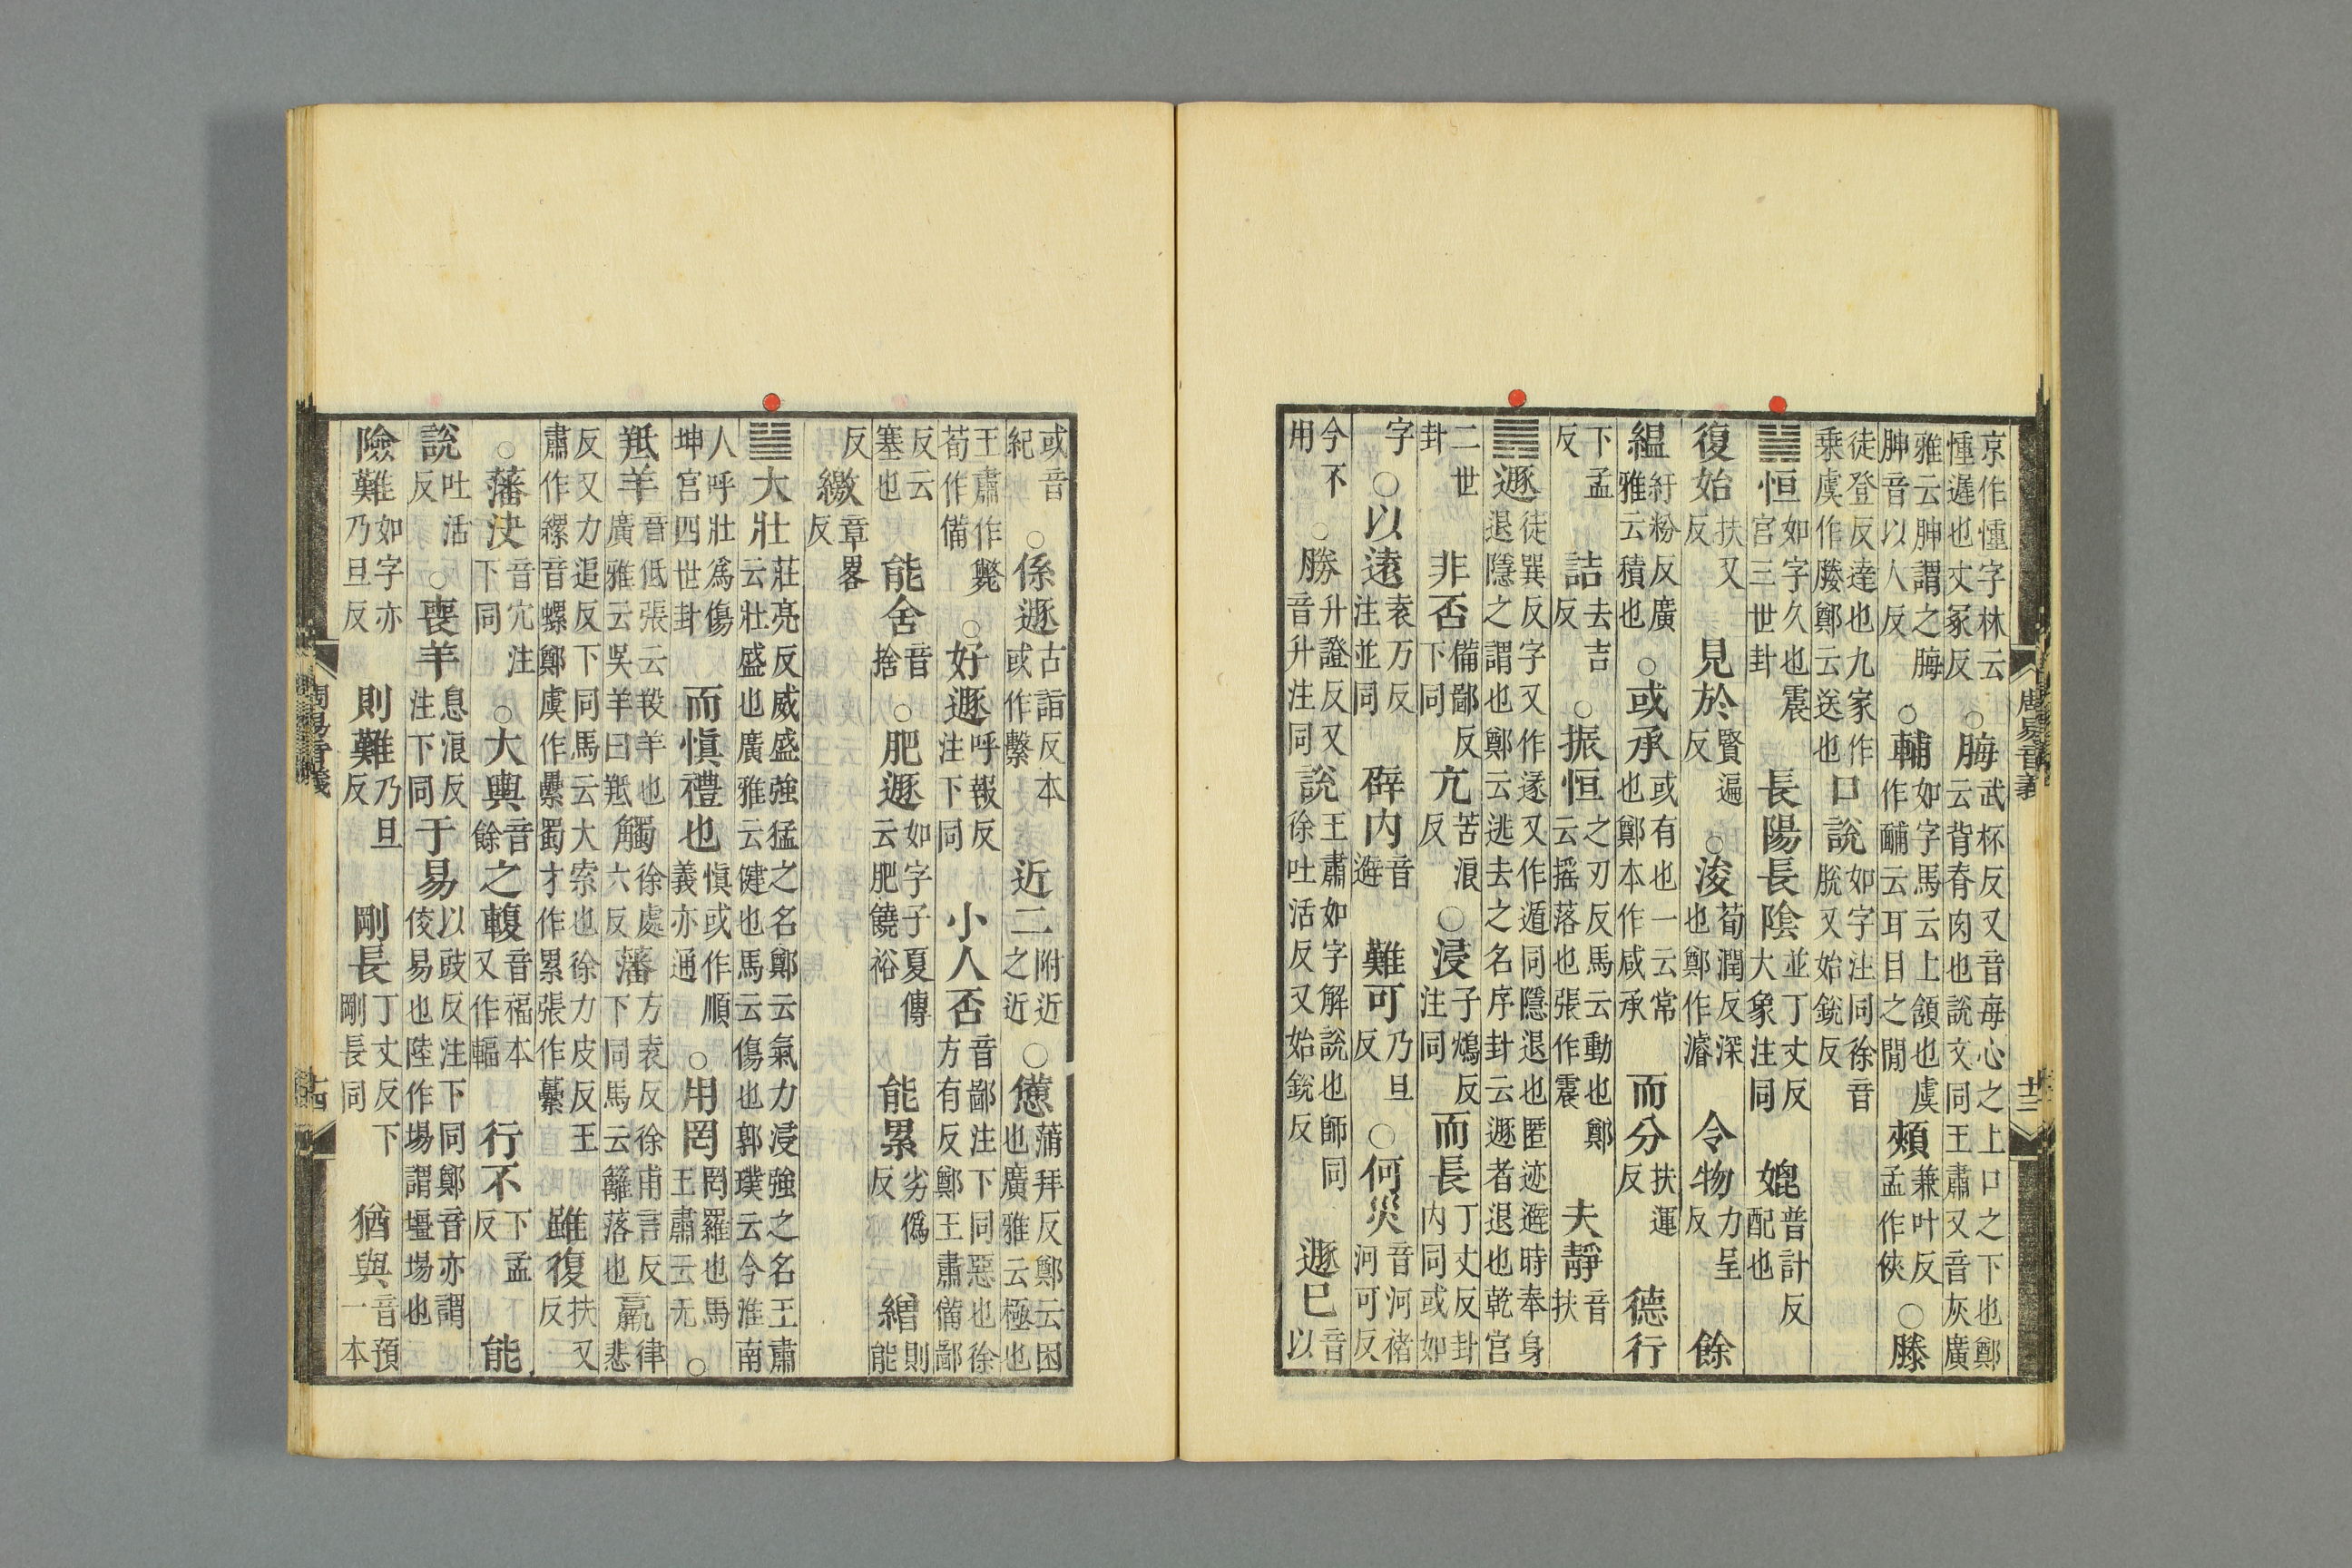 京作憧字林云憧遲也丈冢反○脢武杯反又音每心之上口之下也鄭云背脊肉也說文同王肅又音灰廣
雅云胂謂之脢胂音以人反○輔如字馬云上頷也虞作䩉云耳目之閒頰兼叶反孟作俠○滕
徒登反達也九家作乗虞作媵鄭云送也口說如字注同徐音脫又始銳反
䷟恒如字久也震宮三世卦長陽長陰並丁丈反大象注同媲普計反配也
復始扶又反見於賢遍反○浚荀潤反深也鄭作濬令物力呈反餘
緼紆粉反廣雅云積也○或承或有也一云常也鄭本作咸承而分扶運反德行
下孟反詰去吉反○振恒之刃反馬云動也鄭云揺落也張作震夫靜音扶
䷠遯徒巽反字又作遂又作遁同隱退也匿迹避時奉身退隱之謂也鄭云逃去之名序卦云遯者退也乾宮
二世卦非否備鄙反下同亢苦浪反○浸子鴆反注同而長丁丈反卦内同或如
字○以遠袁万反注並同辟内音避難可乃旦反○何災音河褚河可反
今不用○勝升證反又音升注同說王肅如字解說也師同徐吐活反又始銳反遯已音以
周易音義
十三
或音紀○係遯古詣反本或作繫近二附近之近○憊蒲拜反鄭云困也廣雅云極也
王肅作斃荀作備○好遯呼報反注下同小人否音鄙注下同惡也徐方有反鄭王肅備鄙
反云塞也能舍音捨○肥遯如字子夏傳云肥饒裕能累劣僞反繒則能
反繳章畧反
䷡大壯莊亮反威盛強猛之名鄭云氣力浸強之名王肅云壯盛也廣雅云健也馬云傷也郭璞云今淮南
人呼壯爲傷坤宮四世卦而愼禮也愼或作順義亦通○用罔罔羅也馬王肅云无○
羝羊音低張云羖羊也廣雅云吳羊曰羝觸徐處六反藩方袁反徐甫言反下同馬云籬落也羸律悲
反又力追反下同馬云大索也徐力皮反王肅作縲音螺鄭虞作纍蜀才作累張作虆雖復扶又反
○藩決音穴注下同○大輿音餘之輹音福本又作輻行不下孟反能
說吐活反○喪羊息浪反注下同于易以豉反注下同鄭音亦謂佼易也陸作場謂壃場也
險難如字亦乃旦反則難乃旦反剛長丁丈反下剛長同猶與音預一本
周易音義
十四